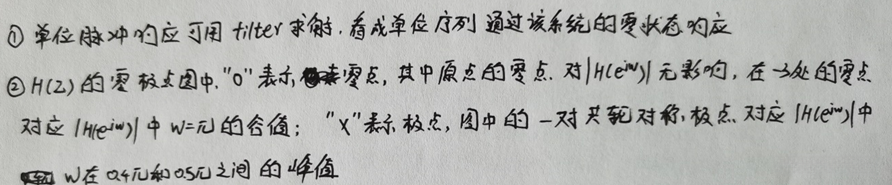 ① 单位脉冲响应可用 filter 求解，看成单位序列通过该系统的零状态响应
② H(Z) 的零极点图中，"0"表示零点，其中原点的零点对|H(e^jw)|无影响，在-1处的零点
对应 |H(e^jw)| 中 w=π 的谷值； "X"表示极点，图中的一对共轭对称极点对应 |H(e^jw)|中
w在0.4π和0.5π之间的峰值